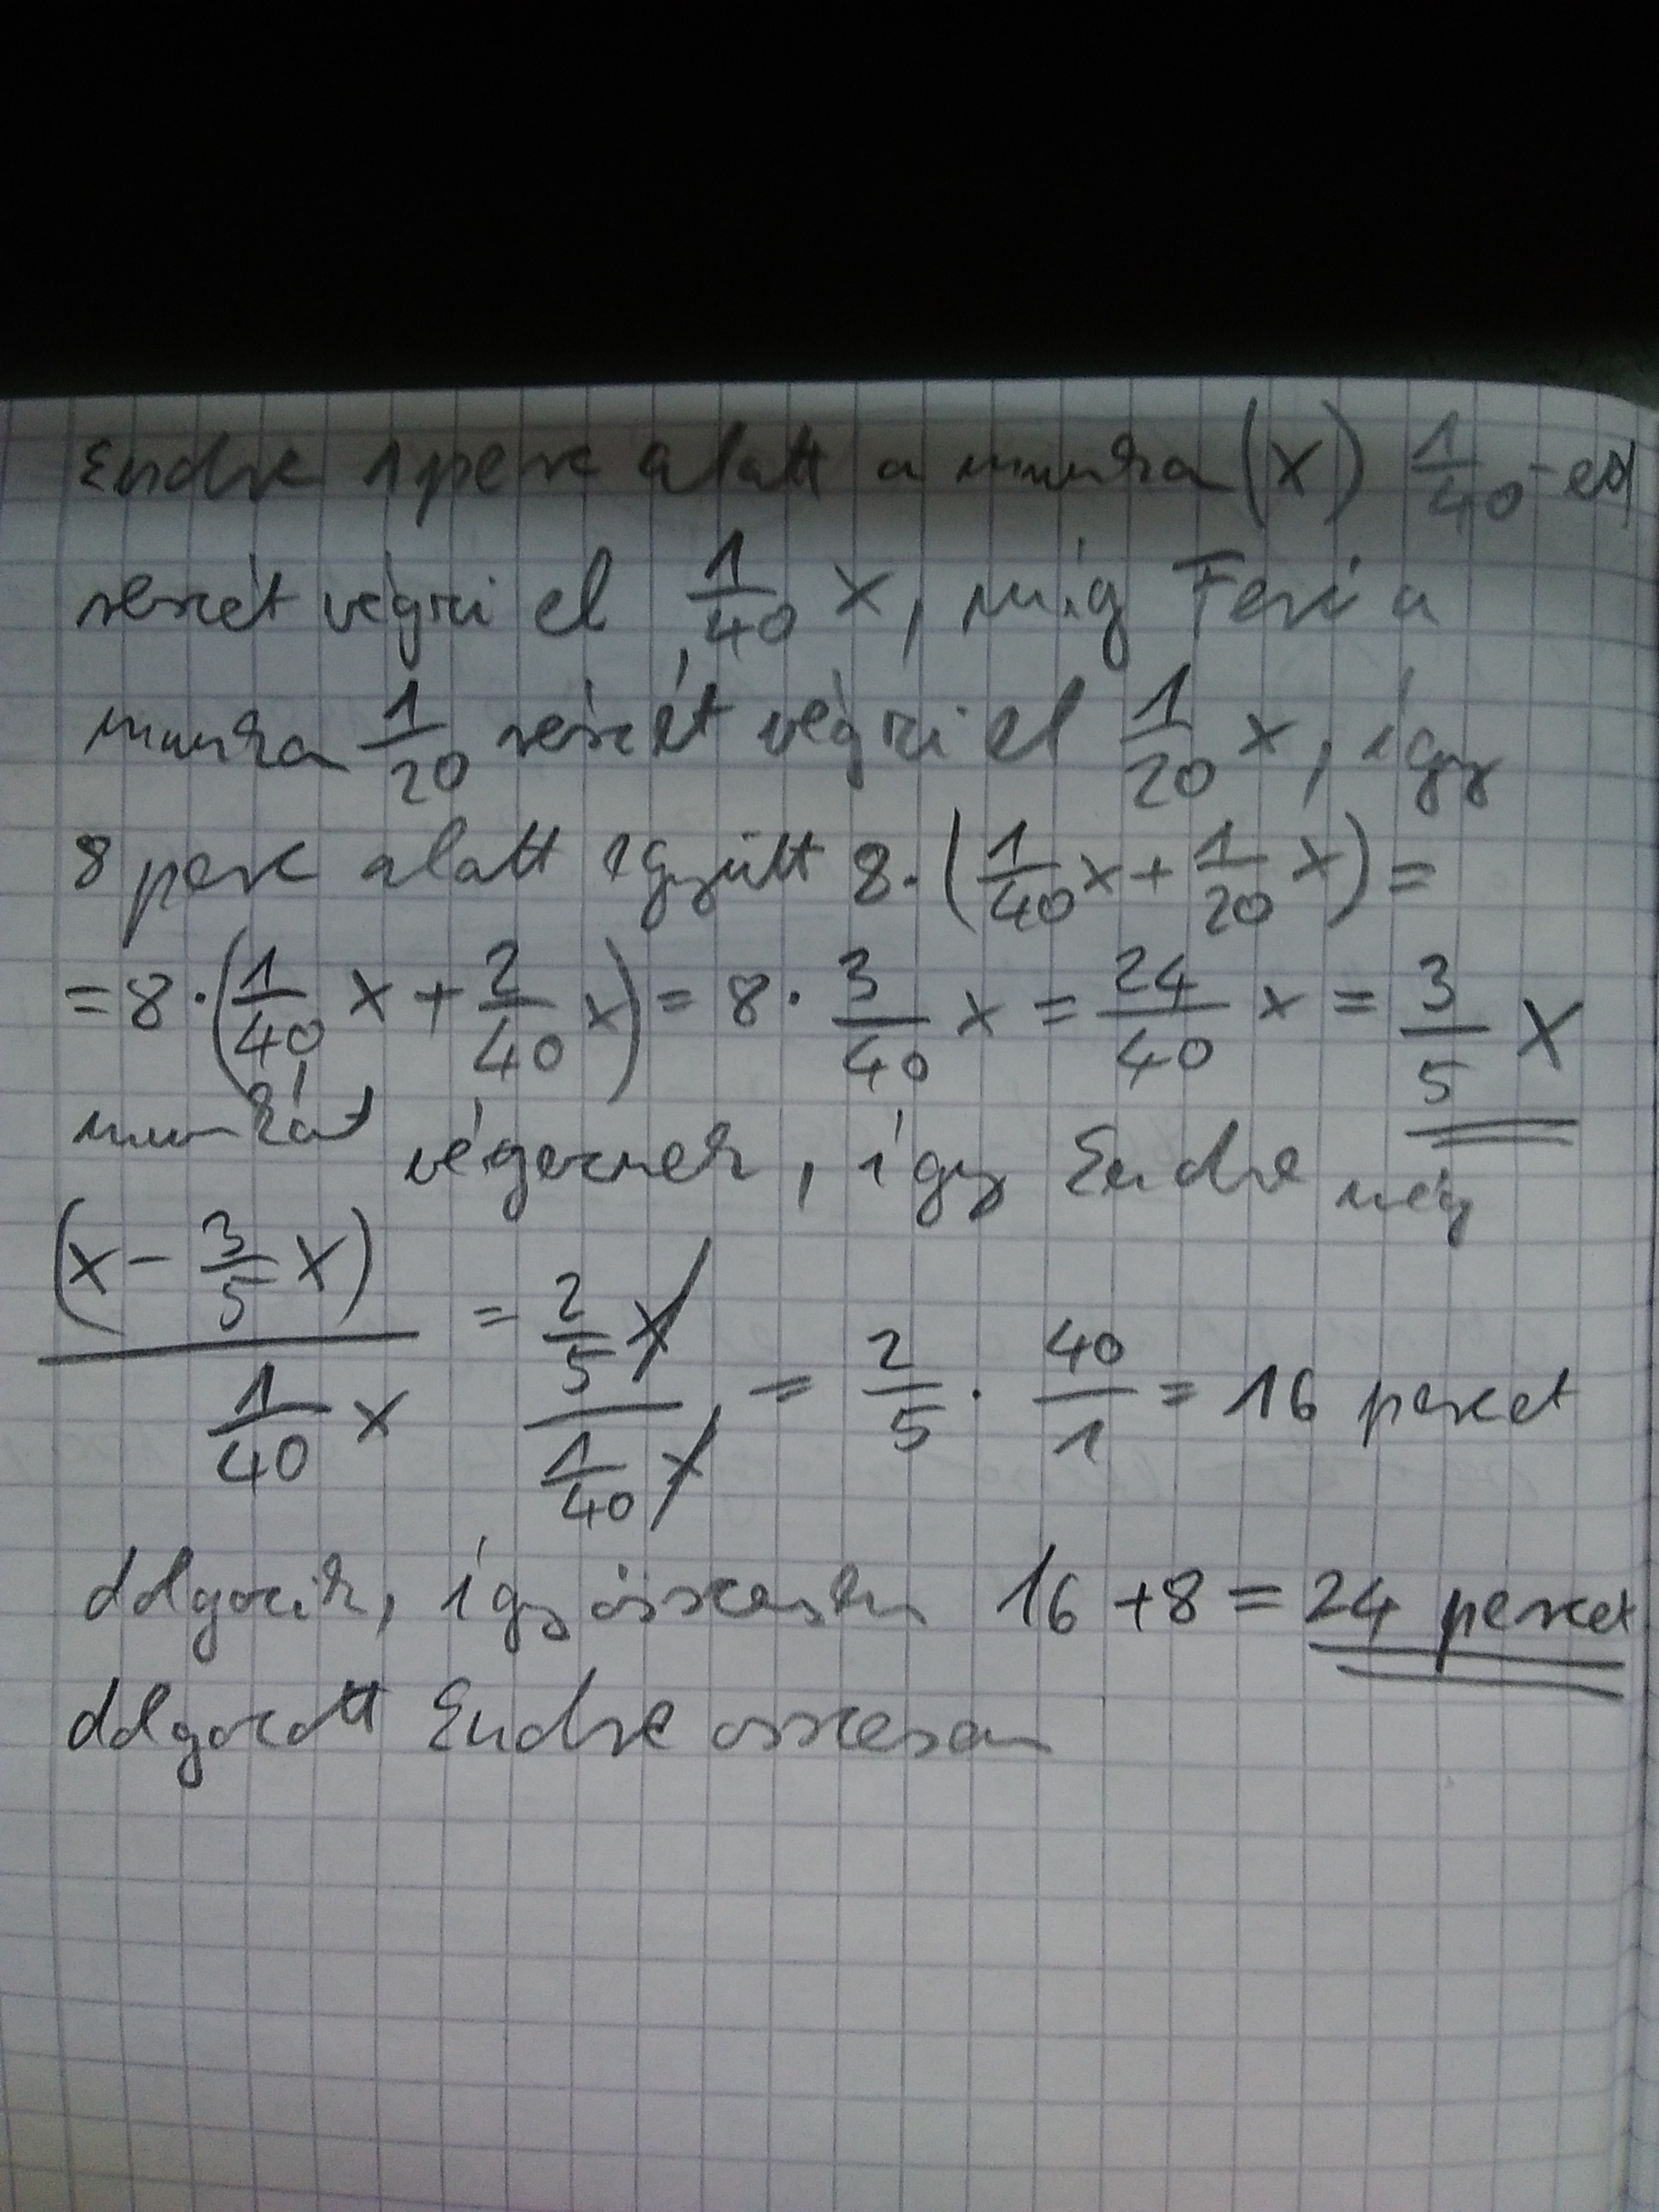 Endre 1 perc alatt a munka (x) 1/40-ed
részét végzi el, 1/40 x, míg Feri a
munka 1/20 részét végzi el 1/20 x, így
8 perc alatt együtt 8·(1/40 x + 1/20 x) =
= 8·(1/40 x + 2/40 x) = 8· 3/40 x = 24/40 x = 3/5 x
munkát végeznek, így Endre még
(x - 3/5 x) / (1/40 x) = (2/5 x) / (1/40 x) = 2/5 · 40/1 = 16 percet
dolgozik, így összesen 16 + 8 = 24 percet
dolgozott Endre összesen